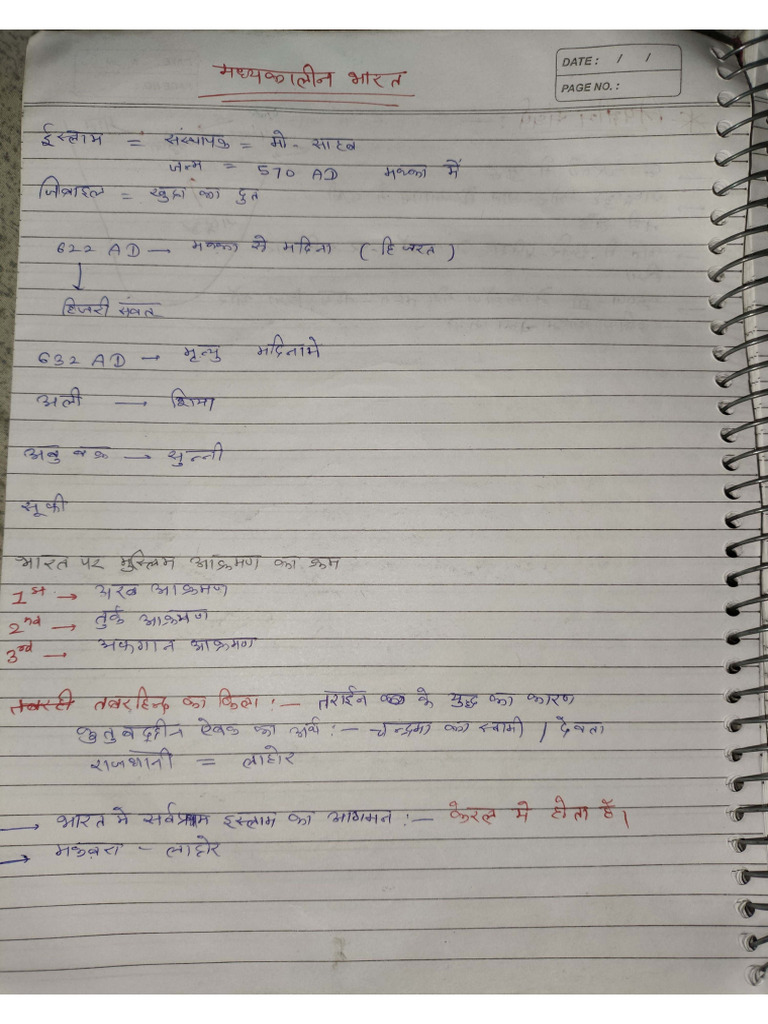 मध्यकालीन भारत
DATE: / /
PAGE NO.:
ईस्लाम = संस्थापक = मो - साहब
जन्म = 570 AD मक्का में
जिब्राइल = खुदा का दुत
622 AD → मक्का से मदिना (हिजरत)
↓
हिजरी संवत
632 AD → मृत्यु मदिनामे
अली → शिया
अबु बक्र → सुन्नी
सूफी
भारत पर मुस्लिम आक्रमण का क्रम
1st → अरब आक्रमण
2nd → तुर्क आक्रमण
3rd → अफगान आक्रमण
तबरहिन्द का किला :- तराईन के युद्ध का कारण
कुतुबद्दीन ऐबक का अर्थ :- चन्द्रमा का स्वामी / देवता
राजधानी = लाहोर
→ भारत मे सर्वप्रथम इस्लाम का आगमन :- केरल मे होता है।
→ मकबरा - लाहोर